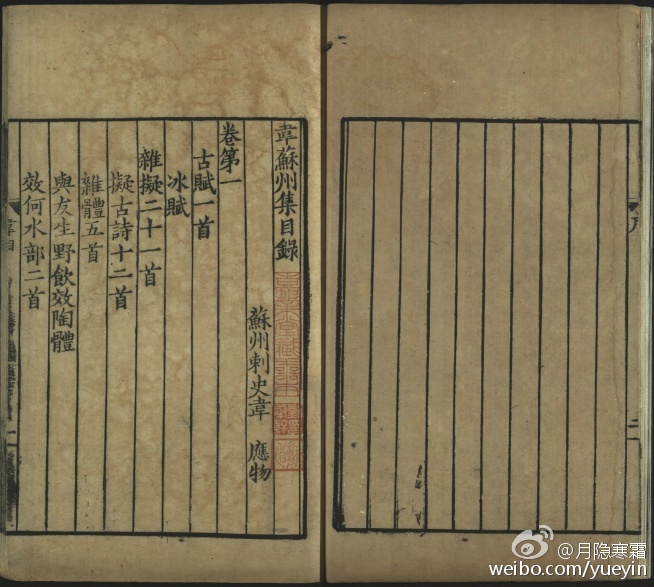 韋蘇州集目錄
蘇州刺史韋 應物
卷第一
古賦一首
冰賦
雜擬二十一首
擬古詩十二首
雜體五首
與友生野飲效陶體
效何水部二首
一
序
二
@月隐寒霜
weibo.com/yueyin